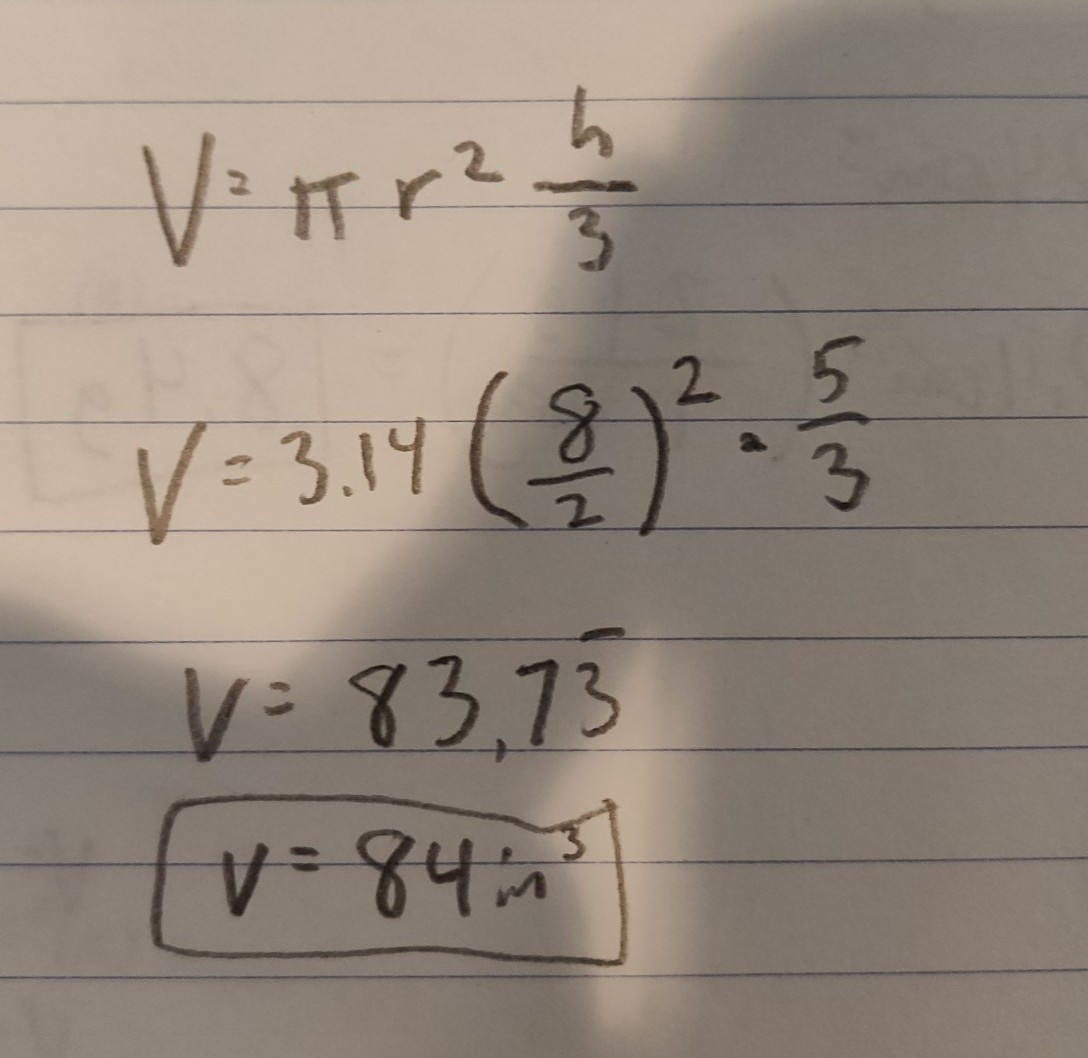 V = π r² h/3
V = 3.14 (8/2)² · 5/3
V = 83,73̅
V = 84 in³